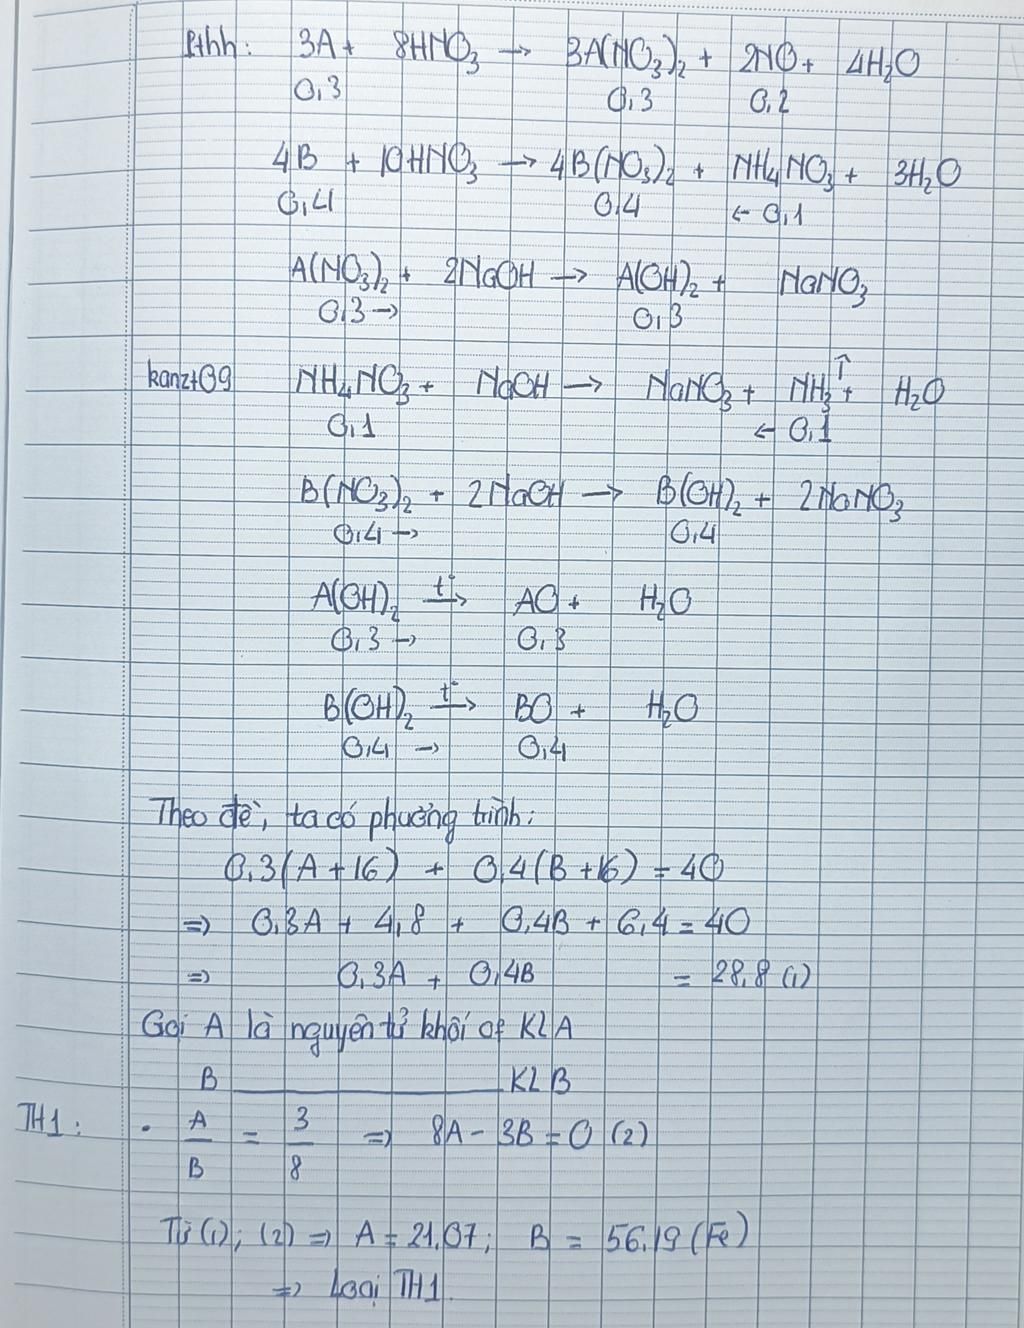 Pthh: 3A + 8HNO₃ → 3A(NO₃)₂ + 2NO + 4H₂O
0,3 0,3 0,2
4B + 10HNO₃ → 4B(NO₃)₂ + NH₄NO₃ + 3H₂O
0,4 0,4 ← 0,1
A(NO₃)₂ + 2NaOH → A(OH)₂ + NaNO₃
0,3 → 0,3
NH₄NO₃ + NaOH → NaNO₃ + NH₃↑ + H₂O
0,1 ← 0,1
B(NO₃)₂ + 2NaOH → B(OH)₂ + 2NaNO₃
0,4 → 0,4
A(OH)₂ t°→ AO + H₂O
0,3 → 0,3
B(OH)₂ t°→ BO + H₂O
0,4 → 0,4
Theo đề, ta có phương trình:
0,3(A + 16) + 0,4(B + 16) = 40
⇒ 0,3A + 4,8 + 0,4B + 6,4 = 40
⇒ 0,3A + 0,4B = 28,8 (1)
Gọi A là nguyên tử khối of KLA
B ———————— KLB
TH1: • A/B = 3/8 ⇒ 8A - 3B = 0 (2)
Từ (1); (2) ⇒ A = 21,07; B = 56,19 (Fe)
⇒ Loại TH1.